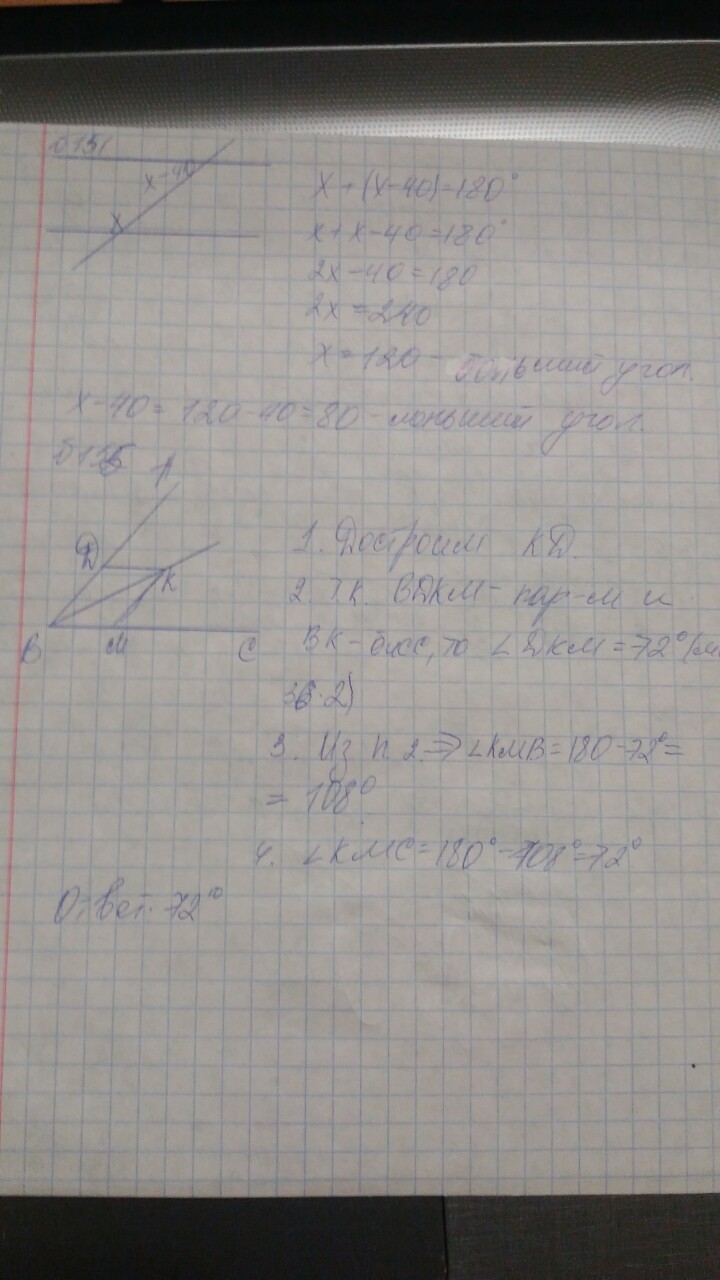 x-40
x
x+(x-40)=180°
x+x-40=180°
2x-40=180
2x=240
x=120- больший угол.
x-40=120-40=80-меньший угол.
A
Д
K
B
M
C
1. Достроим КД.
2. Т.к. ВДКМ- пар-м и
ВК-бисс, то ∠ДКМ=72°
36·2)
3. Из п. 2. ⇒ ∠КМВ=180-72°=
= 108°
4. ∠КМС=180°-108°=72°
Ответ. 72°